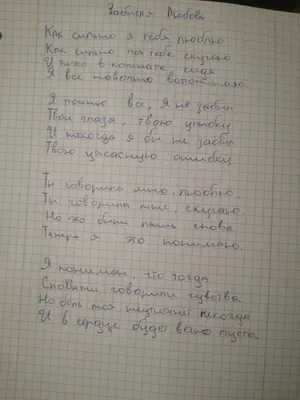 Забытая Любовь
Как сильно я тебя люблю
Как сильно по тебе скучаю
И тихо в комнате сидя
Я всё невольно вспоминаю.
Я помню всё, я не забыл
Твои глаза, твою улыбку
И никогда я бы не забыл
Твою ужасную ошибку
Ты говорила мне, люблю.
Ты говорила мне, скучаю.
Но это были лишь слова
Теперь я это понимаю.
Я понимал, что тогда
Словами говорили чувства
Но боль моя никогда
И в сердце будет вечно пусто.